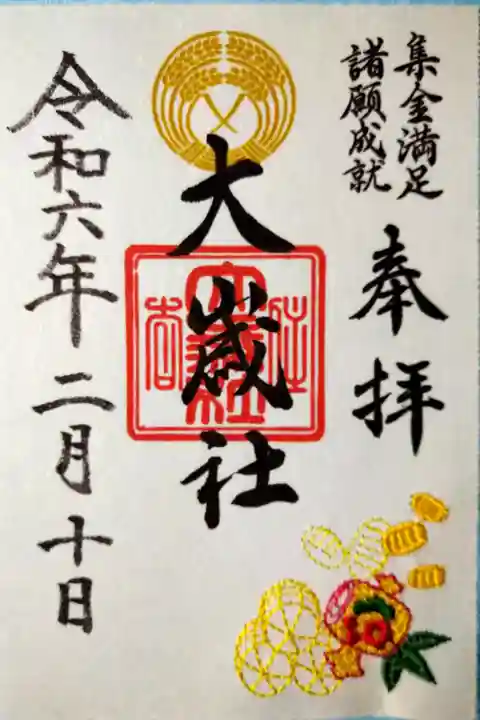 集金満足
諸願成就
奉拝
大歳社
令和六年二月十日